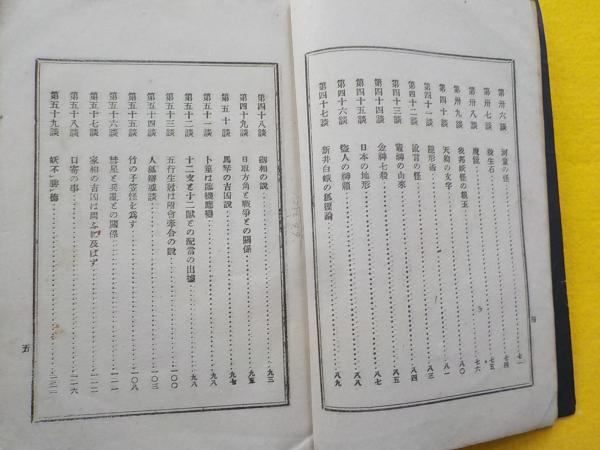 第卅六談 河童の怪 七一
第卅七談 殺生石 七四
第卅八談 魔鏡 七五
第卅九談 我邦妖怪の親玉 七六
第四十談 天狗の文字 八〇
第四十一談 隱形術 八一
第四十二談 流言の怪 八三
第四十三談 靈神の由來 八四
第四十四談 金神七殺 八五
第四十五談 日本の地形 八七
第四十六談 盜人の神願 八八
第四十七談 新井白蛾の狐狸論 八九
四
第四十八談 劍相の說 九三
第四十九談 日取方角と戰爭との關係 九五
第五十談 馬琴の吉凶說 九七
第五十一談 卜筮は臨機應變 九八
第五十二談 十二支と十二獸との配當の出據 九八
第五十三談 五行生尅は附會牽合の說 一〇〇
第五十四談 人狐辨惑談 一〇三
第五十五談 竹の子笠怪を爲す 一〇八
第五十六談 彗星と兵亂との關係 一一一
第五十七談 家相の吉凶は問ふに及ばず 一一二
第五十八談 口寄の事 一一六
第五十九談 妖不勝德 一二一
五